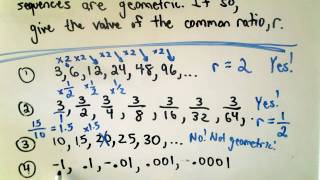 sequences are geometric. If so,
give the value of the common ratio, r.
×2 ×2 ×2 ×2 ×2
① 3, 6, 12, 24, 48, 96, ... r = 2 Yes!
×1/2 ×1/2 ×1/2
② 3/1, 3/2, 3/4, 3/8, 3/16, 3/32, 3/64, r = 1/2 Yes!
15/10 = 1.5 ×1.5
③ 10, 15, 20, 25, 30, ... No! Not geometric!
④ -1, .1, -.01, .001, -.0001